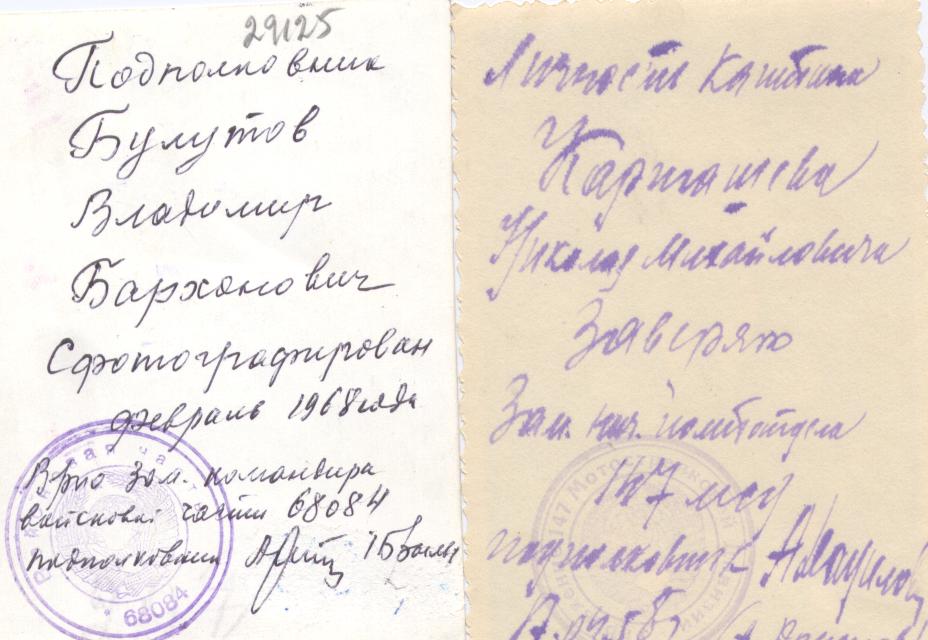 29125
Подполковник
Булутов
Владимир
Бархонович
Сфотографирован
февраль 1968 года
Врио Зам. командира
войсковой части 68084
подполковник
68084
Личность капитана
Карташева
Николая Михайловича
Заверяю
Зам. нач. политотдела
147 мсд
подполковник